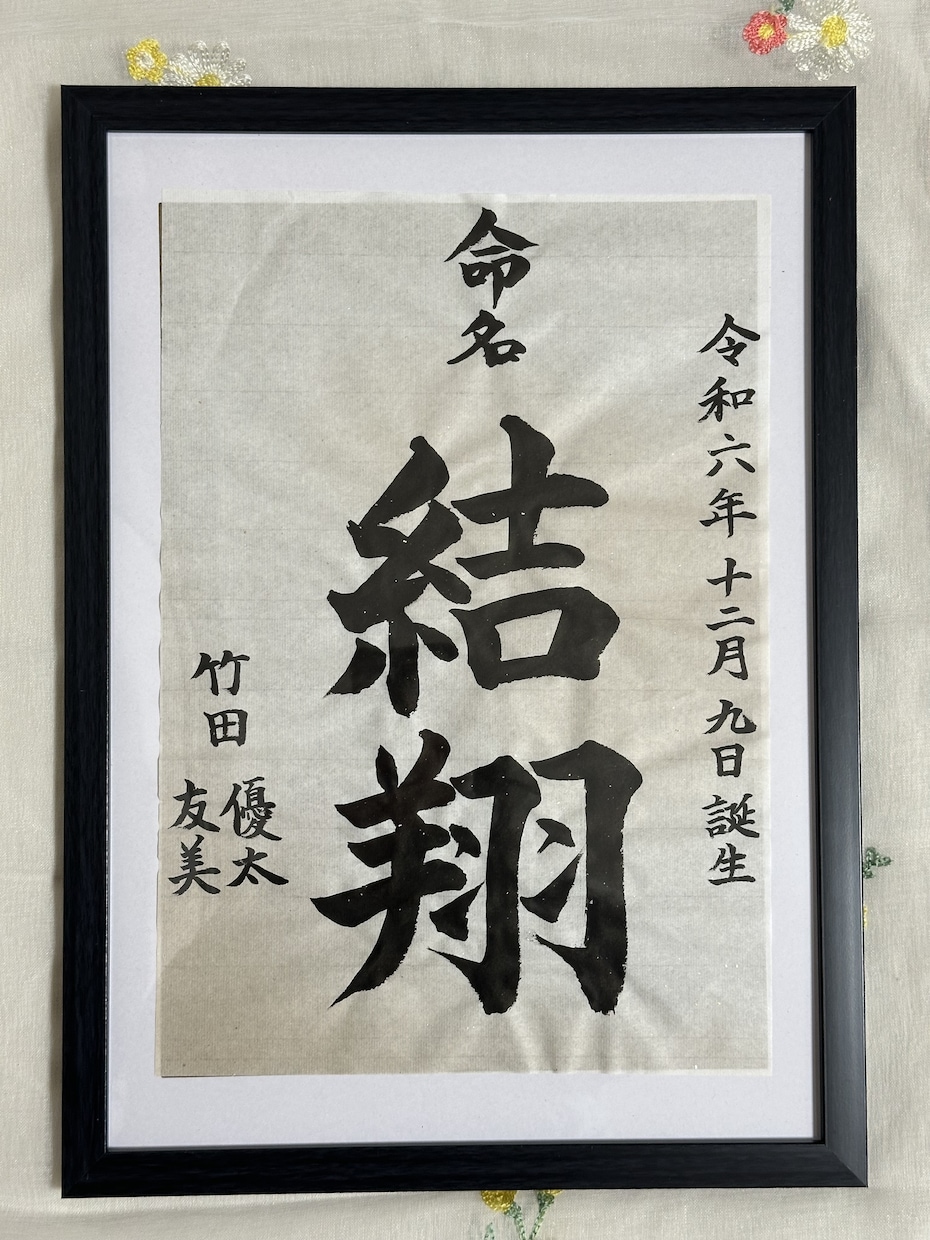 令和六年十二月九日誕生
命名
結翔
竹田
優太
友美